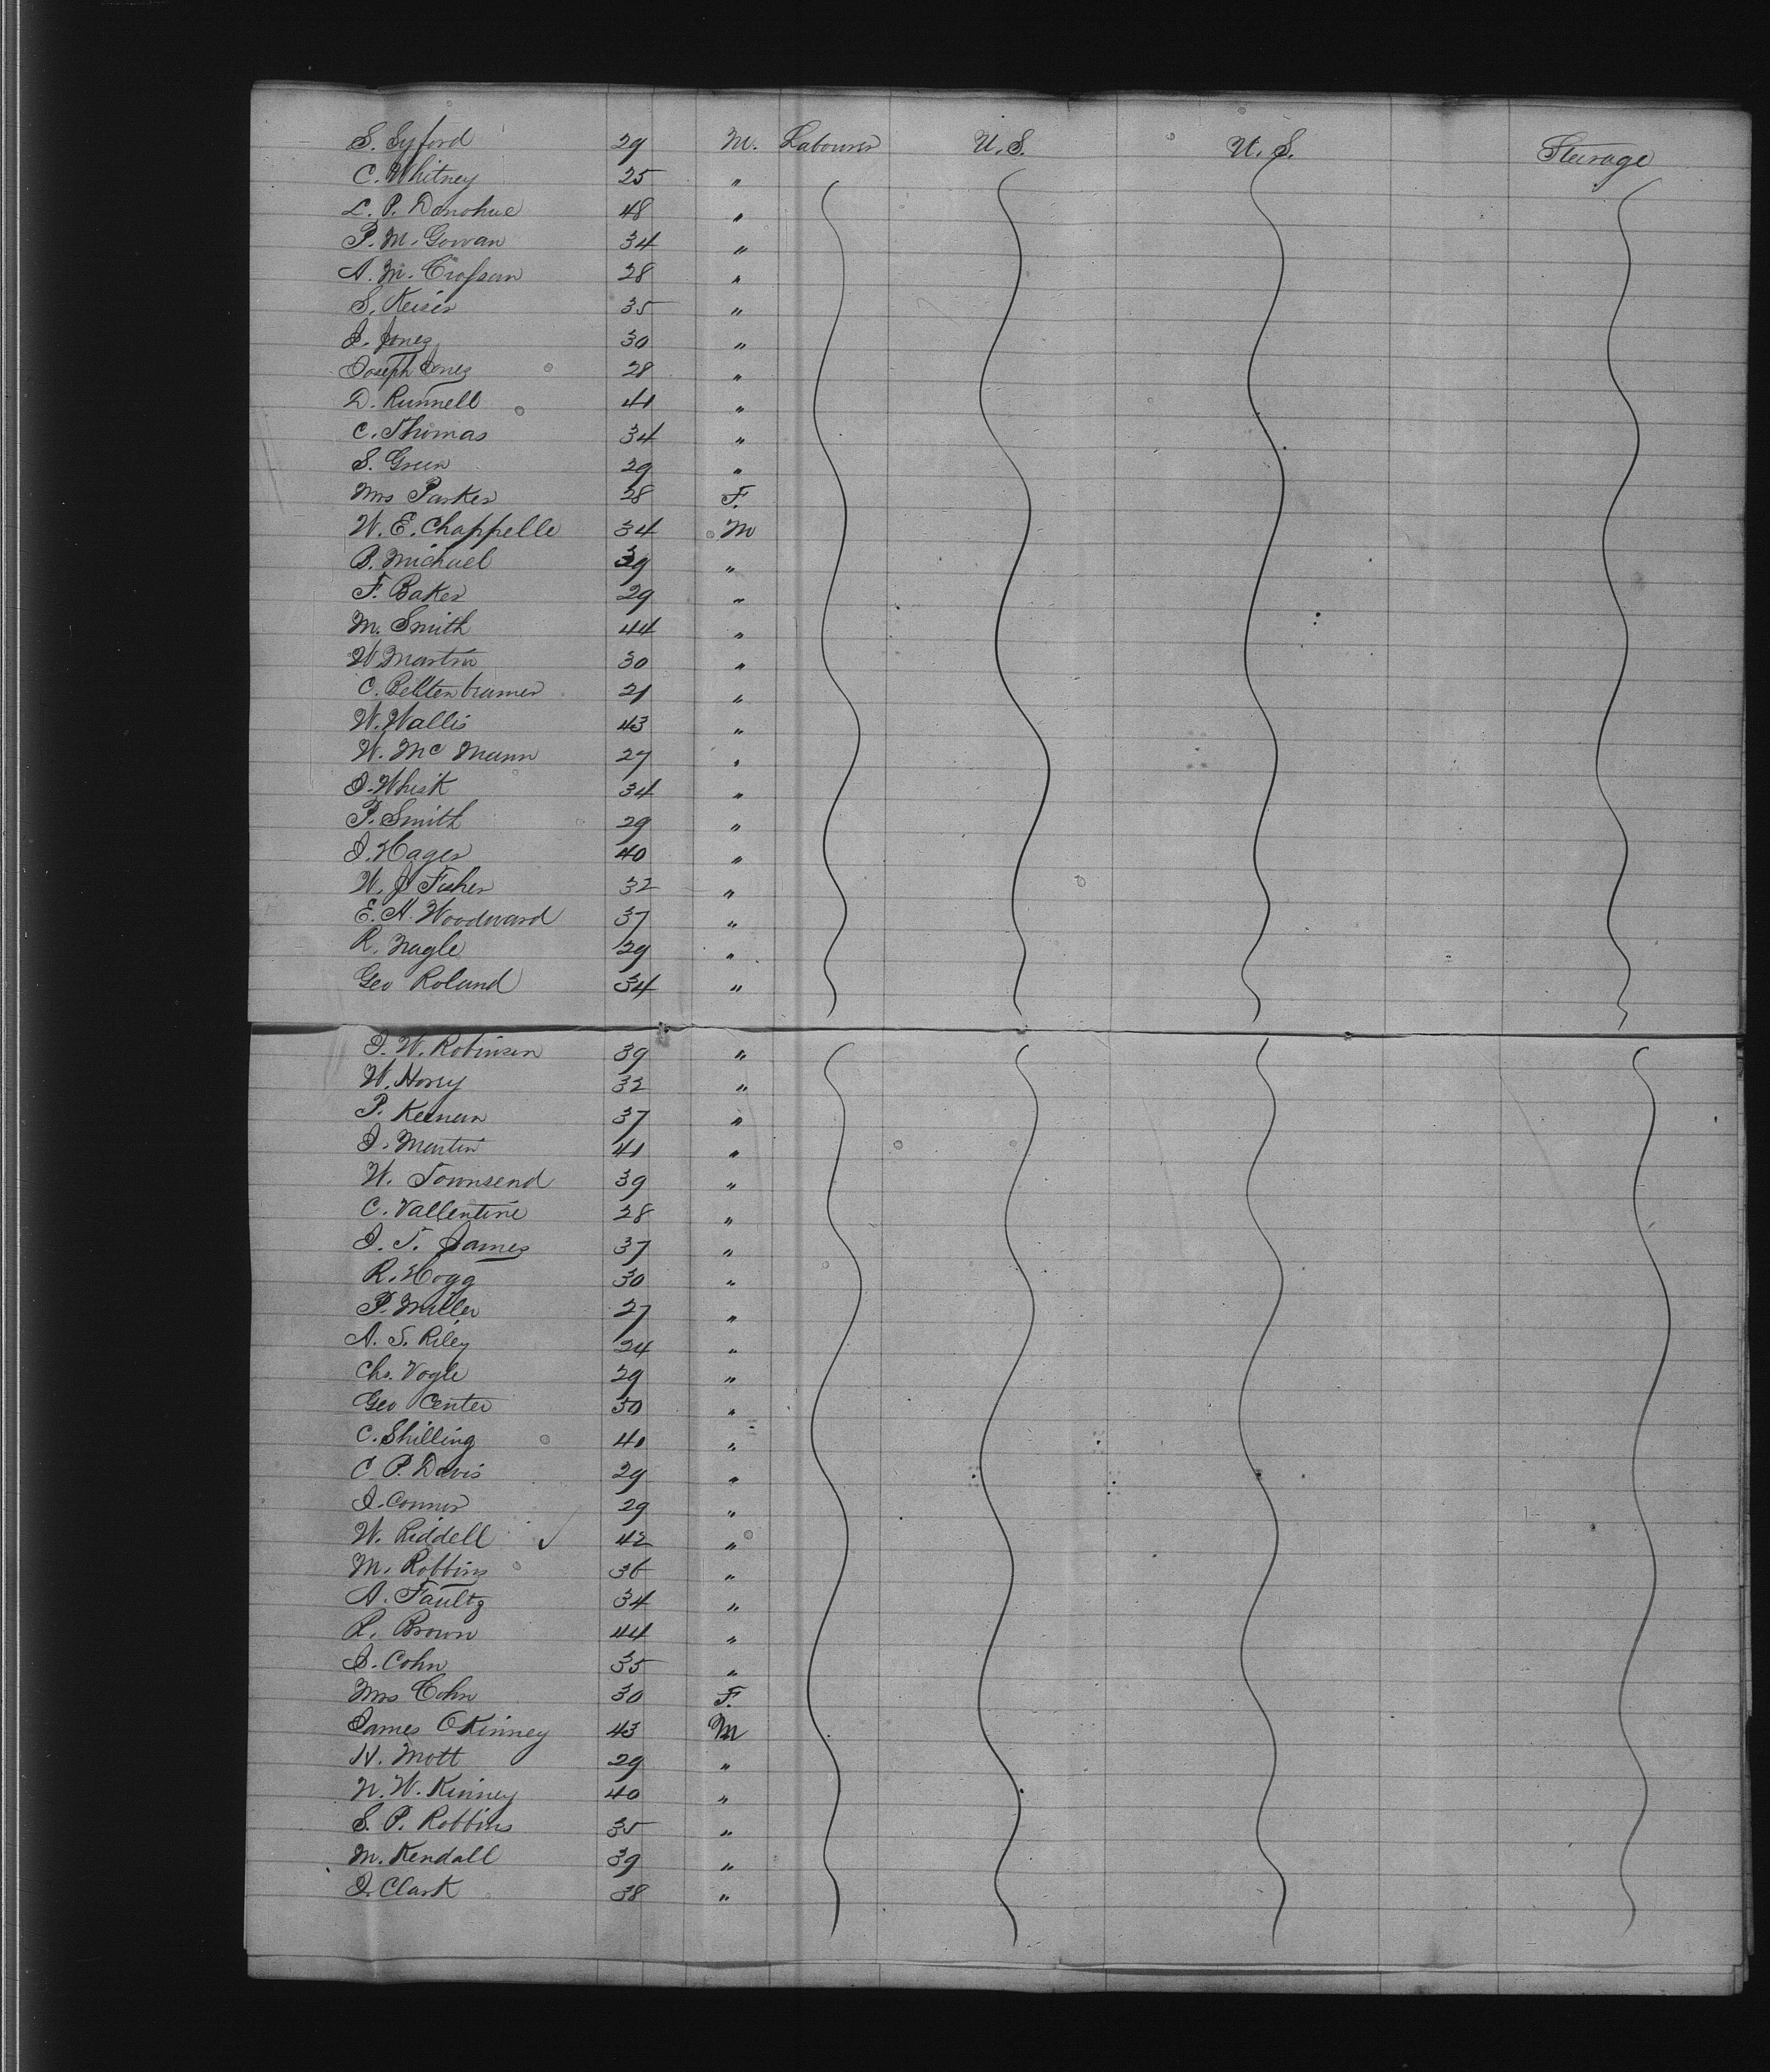 S. Syford 29 M. Labourer U.S. U.S. Steerage
C. Whitney 25 "
L. P. Donohue 48 "
P. M. Gowan 34 "
A. M. Crossan 28 "
S. Keiser 35 "
J. Jones 30 "
Joseph Jones 28 "
D. Runnell 41 "
C. Thomas 34 "
S. Green 29 "
Mrs Parker 28 F.
W. E. Chappelle 34 M
B. Michael 39 "
F. Baker 29 "
M. Smith 44 "
W. Martin 30 "
C. 21 "
W. Wallis 43 "
W. Mc Mann 27 "
J. Whisk 34 "
P. Smith 29 "
J. Hager 40 "
W. J Fisher 32 "
E. H. Woodward 37 "
R. Nagle 29 "
Geo Roland 34 "
J. W. Robinson 39 "
W. 32 "
P. Keenan 37 "
J. Martin 41 "
W. Townsend 39 "
C. Vallentine 28 "
J. T. James 37 "
R. Hogg 30 "
P. Miller 27 "
A. S. Riley 24 "
Chs. Vogle 29 "
Geo Center 30 "
C. Shilling 40 "
C P. Davis 29 "
J. Connor 29 "
W. Riddell ✓ 42 "
M. Robbins 36 "
A. Faultz 34 "
L. Brown 44 "
J. Cohn 35 "
Mrs Cohn 30 F.
James OKinney 43 M
H. Mott 29 "
N. W. Kinney 40 "
S. P. Robbins 35 "
M. Kendall 39 "
J. Clark 38 "